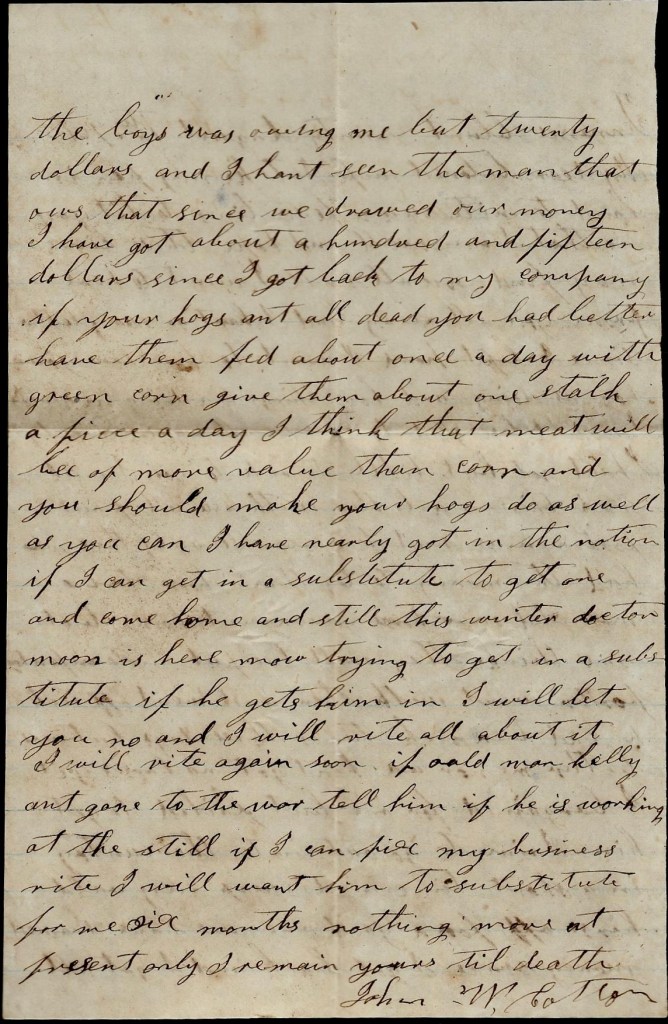 the boys was owing me but twenty
dollars and I hant seen the man that
ows that since we drawed our money
I have got about a hundred and fifteen
dollars since I got back to my company
if your hogs ant all dead you had better
have them fed about once a day with
green corn give them about one stalk
a piece a day I think that meat will
bee of more value than corn and
you should make your hogs do as well
as you can I have nearly got in the notion
if I can get in a substitute to get one
and come home and still this winter doctor
moon is here now trying to get in a subs
titute if he gets him in I will let
you no and I will rite all about it
I will rite again soon if oald man kelly
ant gone to the war tell him if he is working
at the still if I can fix my business
rite I will want him to substitute
for me six months nothing more at
present only I remain yours til death
John W. Cotton